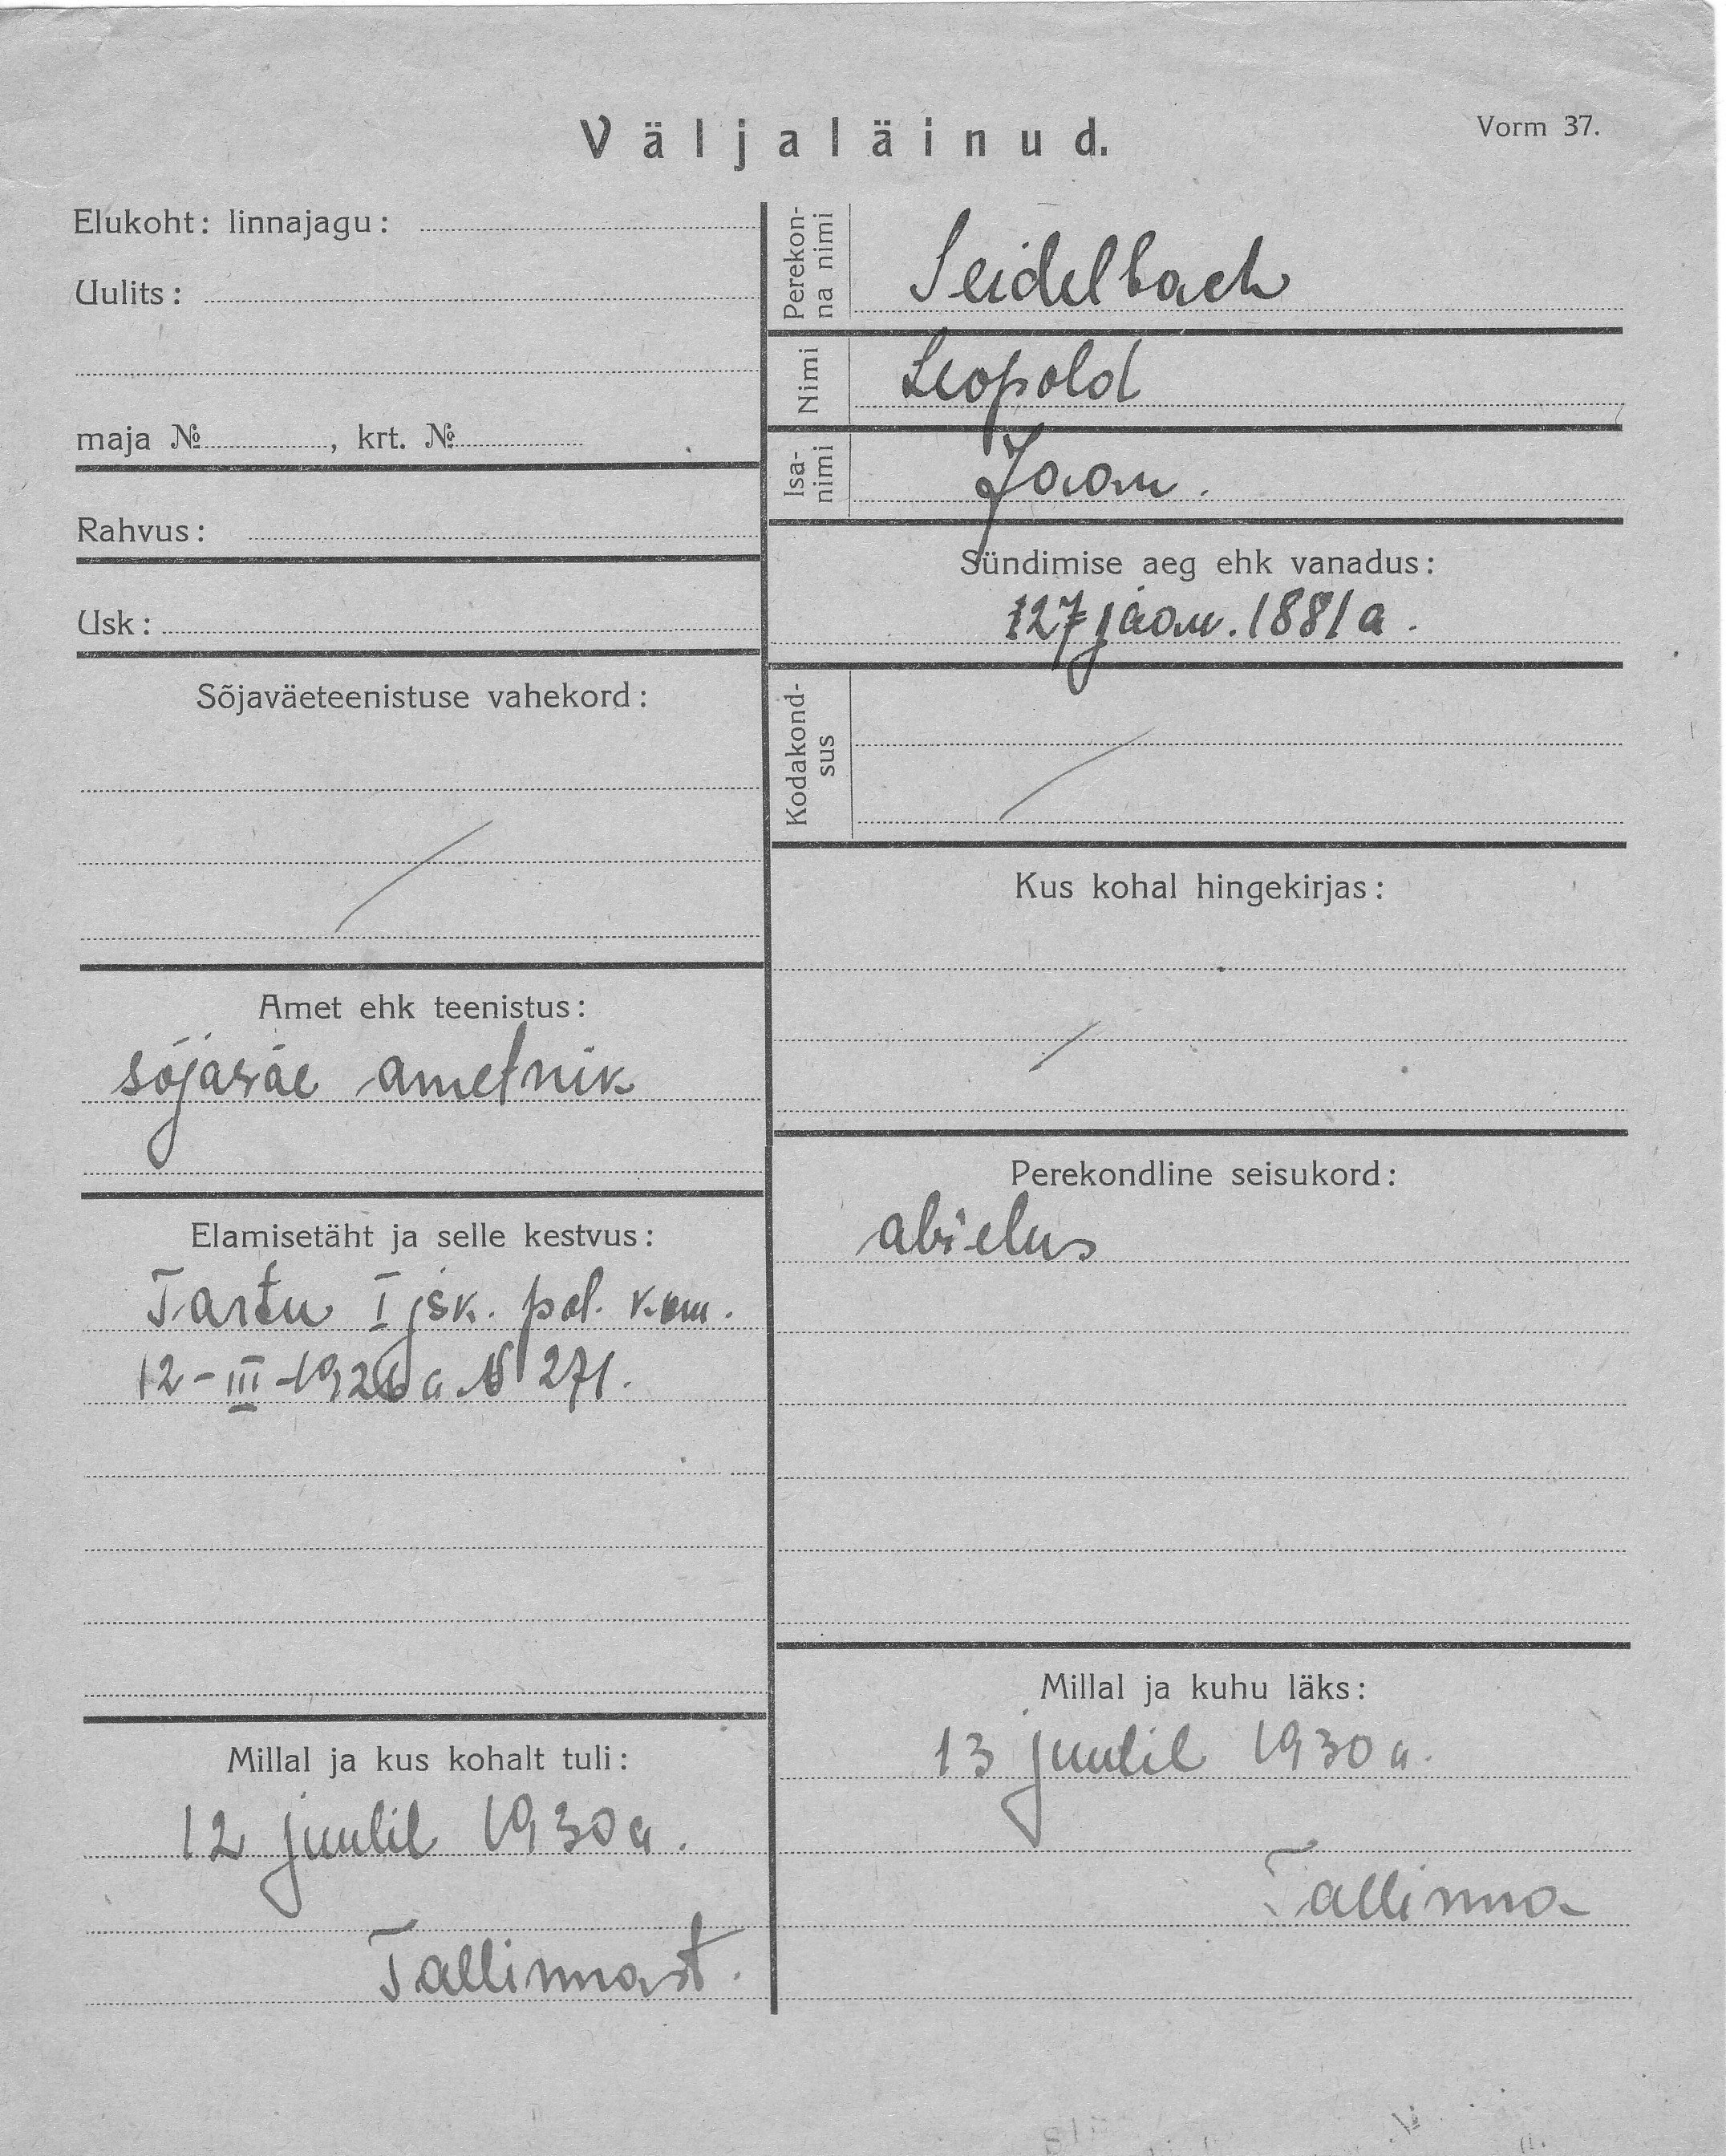 Väljaläinud.
Vorm 37.
Elukoht: linnajagu:
Uulits:
maja №, krt. №
Rahvus:
Usk:
Sõjaväeteenistuse vahekord:
Amet ehk teenistus:
sõjaväe ametnik
Elamisetäht ja selle kestvus:
Tartu I jsk. pol. kom.
12-III-1926 a № 271.
Millal ja kus kohalt tuli:
12 juulil 1930 a.
Tallinnast.
Perekonna nimi
Seidelbach
Nimi
Leopold
Isanimi
Jaan.
Sündimise aeg ehk vanadus:
27 jaan. 1881 a.
Kodakondsus
Kus kohal hingekirjas:
Perekondline seisukord:
abielus
Millal ja kuhu läks:
13 juulil 1930 a.
Tallinna